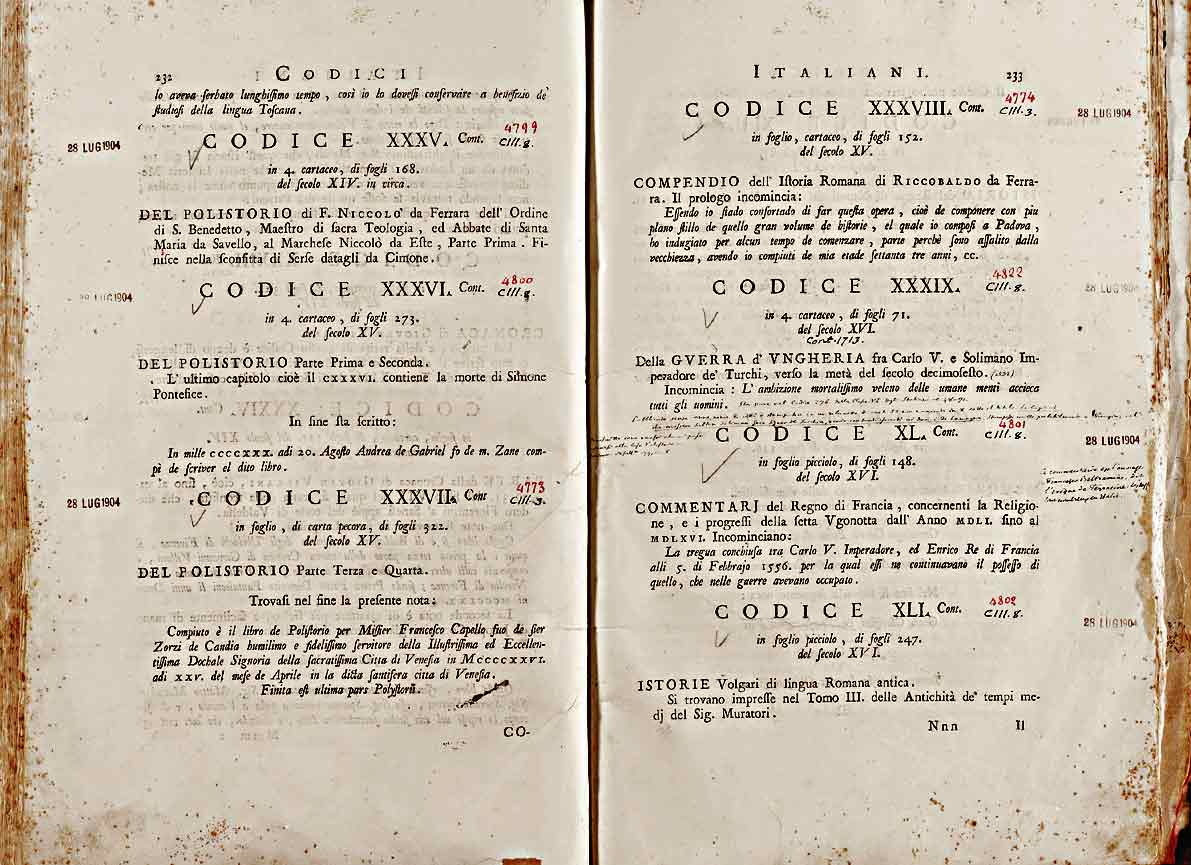 232 CODICI
lo aveva ſerbato lunghiſſimo tempo, così io lo doveſſi conſervare a benefizio de'
ſtudioſi della lingua Toſcana.
28 LUG 1904 CODICE XXXV. Cont. 4799 CIII.g.
in 4. cartaceo, di fogli 168.
del ſecolo XIV. in circa.
DEL POLISTORIO di F. NICCOLO' da Ferrara dell' Ordine
di S. Benedetto, Maeſtro di ſacra Teologia, ed Abbate di Santa
Maria da Savello, al Marcheſe Niccolò da Eſte, Parte Prima. Fi-
niſce nella ſconfitta di Serſe datagli da Cimone.
28 LUG 1904 CODICE XXXVI. Cont. 4800 CIII.g.
in 4. cartaceo, di fogli 273.
del ſecolo XV.
DEL POLISTORIO Parte Prima e Seconda.
L' ultimo capitolo cioè il CXXXVI. contiene la morte di Simone
Ponteſice.
In fine ſta ſcritto:
In mille CCCCXXX. adi 20. Agoſto Andrea de Gabriel fo de m. Zane com-
pì de ſcriver el dito libro.
28 LUG 1904 CODICE XXXVII. Cont 4773 CIII.3.
in foglio, di carta pecora, di fogli 322.
del ſecolo XV.
DEL POLISTORIO Parte Terza e Quarta.
Trovaſi nel fine la preſente nota:
Compiuto è il libro de Poliſtorio per Miſſier Franceſco Capello fuo de ſier
Zorzi de Candia humilimo e fideliſſimo ſervitore della Illuſtriſſima ed Eccellen-
tiſſima Dochale Signoria della ſacratiſſima Citta di Veneſia in MCCCCXXVI.
adi XXV. del meſe de Aprile in la dicta ſantiſera citta di Veneſia.
Finita eſt ultima pars Polyſtorii.
CO-
ITALIANI. 233
CODICE XXXVIII. Cont. 4774 CIII.3. 28 LUG 1904
in foglio, cartaceo, di fogli 152.
del ſecolo XV.
COMPENDIO dell' Iſtoria Romana di RICCOBALDO da Ferra-
ra. Il prologo incomincia:
Eſſendo io ſtado confortado di far queſta opera, cioè de componere con piu
plano ſtillo de quello gran volume de hiſtorie, el quale io compoſi a Padova,
ho indugiato per alcun tempo de comenzare, parte perchè ſono aſſalito dalla
vecchiezza, avendo io compiuti de mia etade ſettanta tre anni, ec.
CODICE XXXIX. 4822 CIII.g. 28 LUG 1904
in 4. cartaceo, di fogli 71.
del ſecolo XVI.
Cont. 1713.
Della GVERRA d' VNGHERIA fra Carlo V. e Solimano Im-
peradore de' Turchi, verſo la metà del ſecolo decimoſeſto.
Incomincia: L' ambizione mortaliſſimo veleno delle umane menti accieca
tutti gli uomini.
CODICE XL. Cont. 4801 CIII.g. 28 LUG 1904
in foglio picciolo, di fogli 148.
del ſecolo XVI.
COMMENTARJ del Regno di Francia, concernenti la Religio-
ne, e i progreſſi della ſetta Vgonotta dall' Anno MDLI. ſino al
MDLXVI. Incominciano:
La tregua conchiuſa tra Carlo V. Imperadore, ed Enrico Re di Francia
alli 5. di Febbrajo 1556. per la qual eſſi ne continuavano il poſſeſſo di
quello, che nelle guerre avevano occupato.
CODICE XLI. Cont. 4802 CIII.g. 28 LUG 1904
in foglio picciolo, di fogli 247.
del ſecolo XVI.
ISTORIE Volgari di lingua Romana antica.
Si trovano impreſſe nel Tomo III. delle Antichità de' tempi me-
dj del Sig. Muratori.
Nnn II